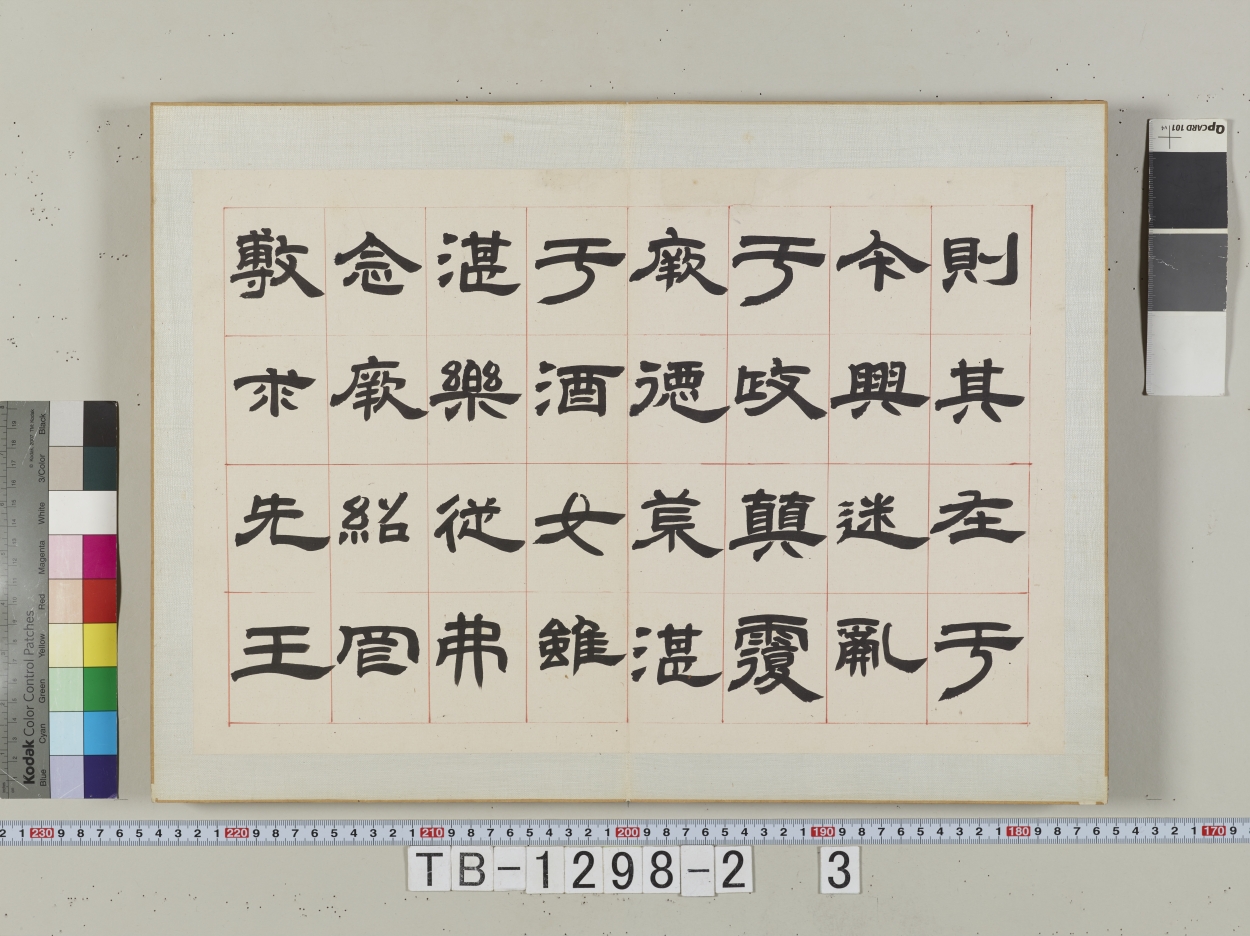 則其在于
今興迷亂
于政顛覆
厥德荒湛
于酒女雖
湛樂從弗
念厥紹罔
敷求先王
TB-1298-2 3
QPCARD 101
Kodak Color Control Patches
Blue Cyan Green Yellow Red Magenta White 3/Color Black
230 220 210 200 190 180 170